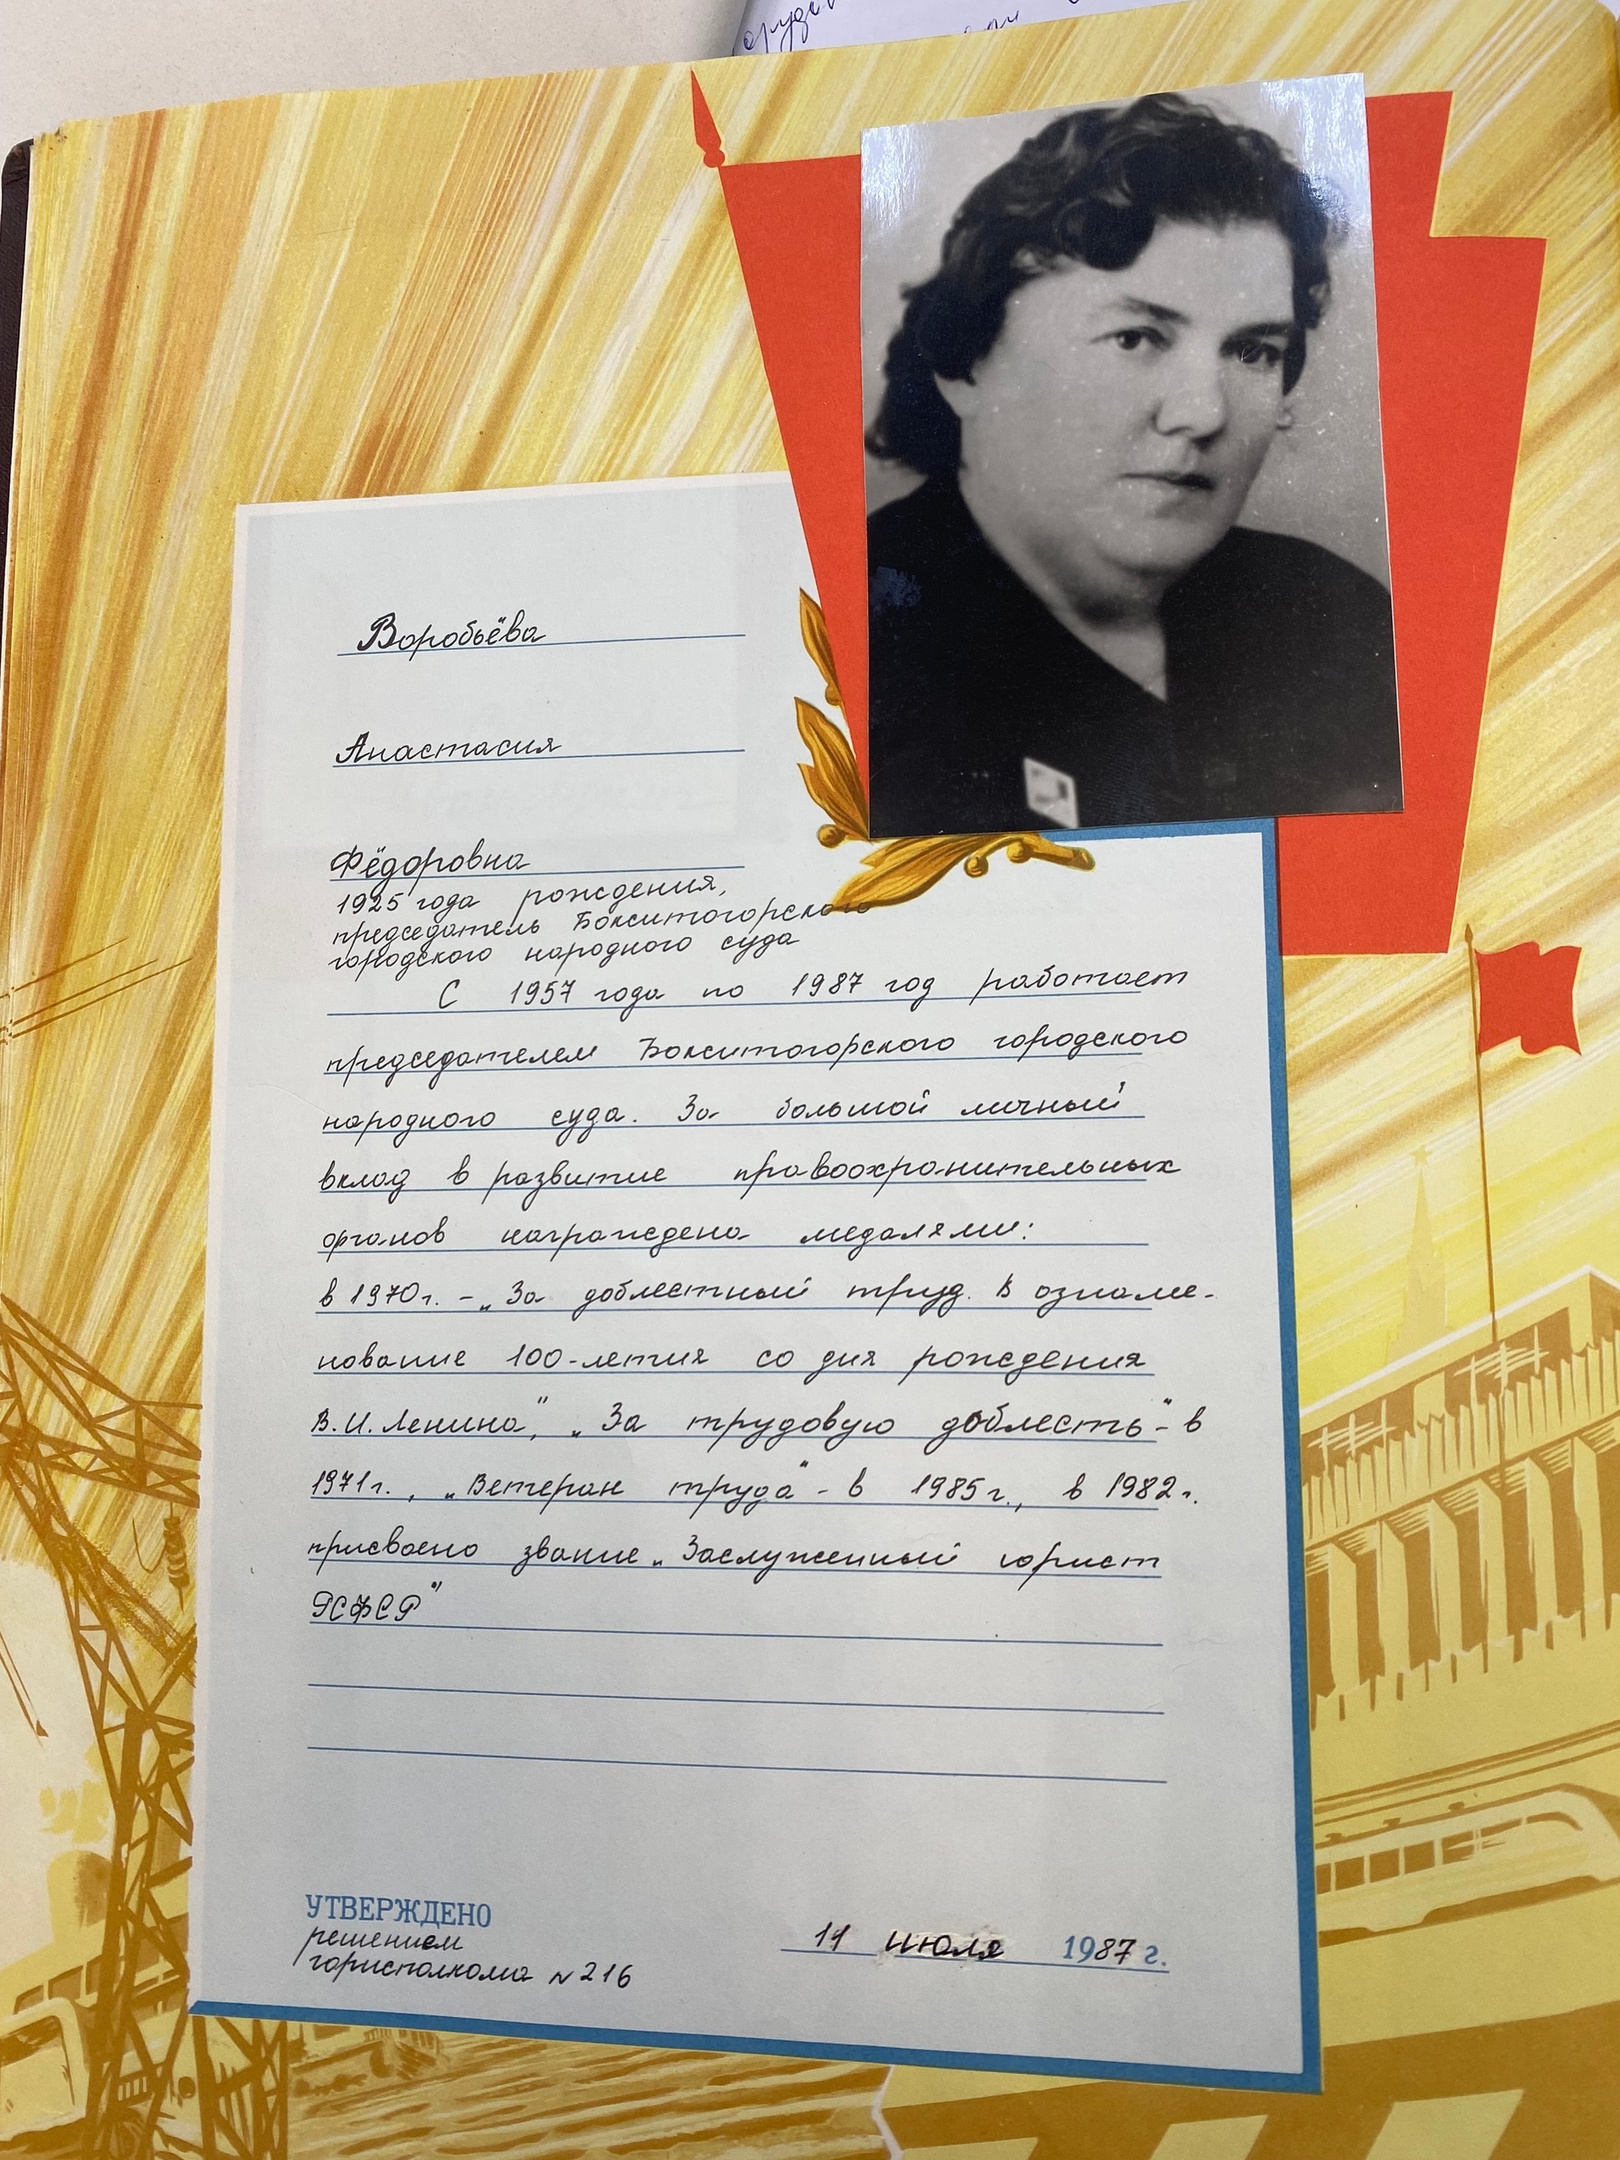 Воробьёва
Анастасия
Фёдоровна
1925 года рождения,
председатель Бокситогорского
городского народного суда
С 1957 года по 1987 год работает
председателем Бокситогорского городского
народного суда. За большой личный
вклад в развитие правоохранительных
органов награждена медалями:
в 1970г. - „За доблестный труд. В ознаме-
нование 100-летия со дня рождения
В.И.Ленина", „За трудовую доблесть" - в
1971г., „Ветеран труда" - в 1985г., в 1982г.
присвоено звание „Заслуженный юрист
РСФСР"
УТВЕРЖДЕНО
решением
горисполкома N216
11 июля 1987 г.